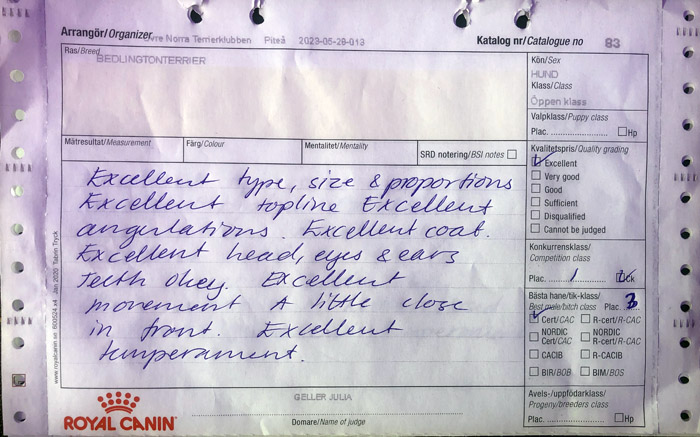 Arrangör/Organizer
Övre Norra Terrierklubben Piteå 2023-05-28-013
Katalog nr/Catalogue no 83
Ras/Breed
BEDLINGTONTERRIER
Kön/Sex
HUND
Klass/Class
Öppen klass
Valpklass/Puppy class
Plac. Hp
Mätresultat/Measurement
Färg/Colour
Mentalitet/Mentality
SRD notering/BSI notes
Kvalitetspris/Quality grading
Excellent
Very good
Good
Sufficient
Disqualified
Cannot be judged
Konkurrensklass/
Competition class
Plac. 1 Ck
Bästa hane/tik-klass/
Best male/bitch class Plac. 3
Cert/CAC R-cert/R-CAC
NORDIC Cert/CAC NORDIC R-cert/R-CAC
CACIB R-CACIB
BIR/BOB BIM/BOS
Avels-/uppfödarklass/
Progeny/breeders class
Plac. Hp
Excellent type, size & proportions
Excellent topline Excellent
angulations. Excellent coat.
Excellent head, eyes & ears
Teeth okey. Excellent
movement A little close
in front. Excellent
temperament.
GELLER JULIA
Domare/Name of judge
ROYAL CANIN
www.royalcanin.se 600524 x4 Jan. 2020 Tabim Tryck